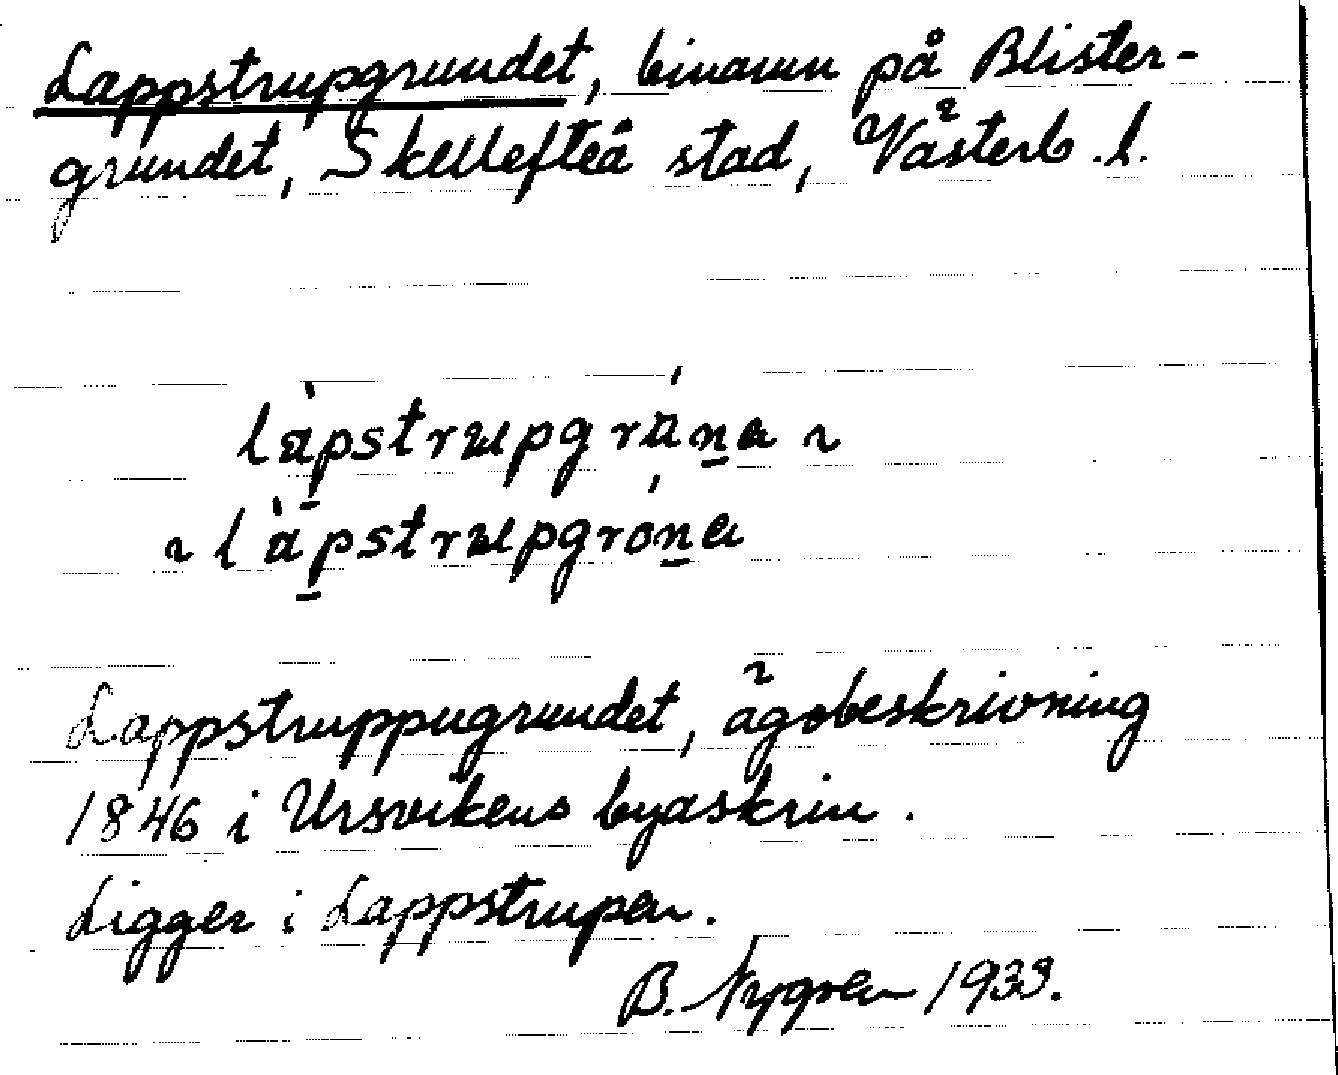 Lappstrupgrundet, binamn på Blister-
grundet, Skellefteå stad, Västerb. l.
làpstrupgrúna ~
~ làpstrupgróna
Lappstruppugrundet, ägobeskrivning
1846 i Ursvikens byaskrin.
Ligger i Lappstrupen.
B. Nygren 1933.